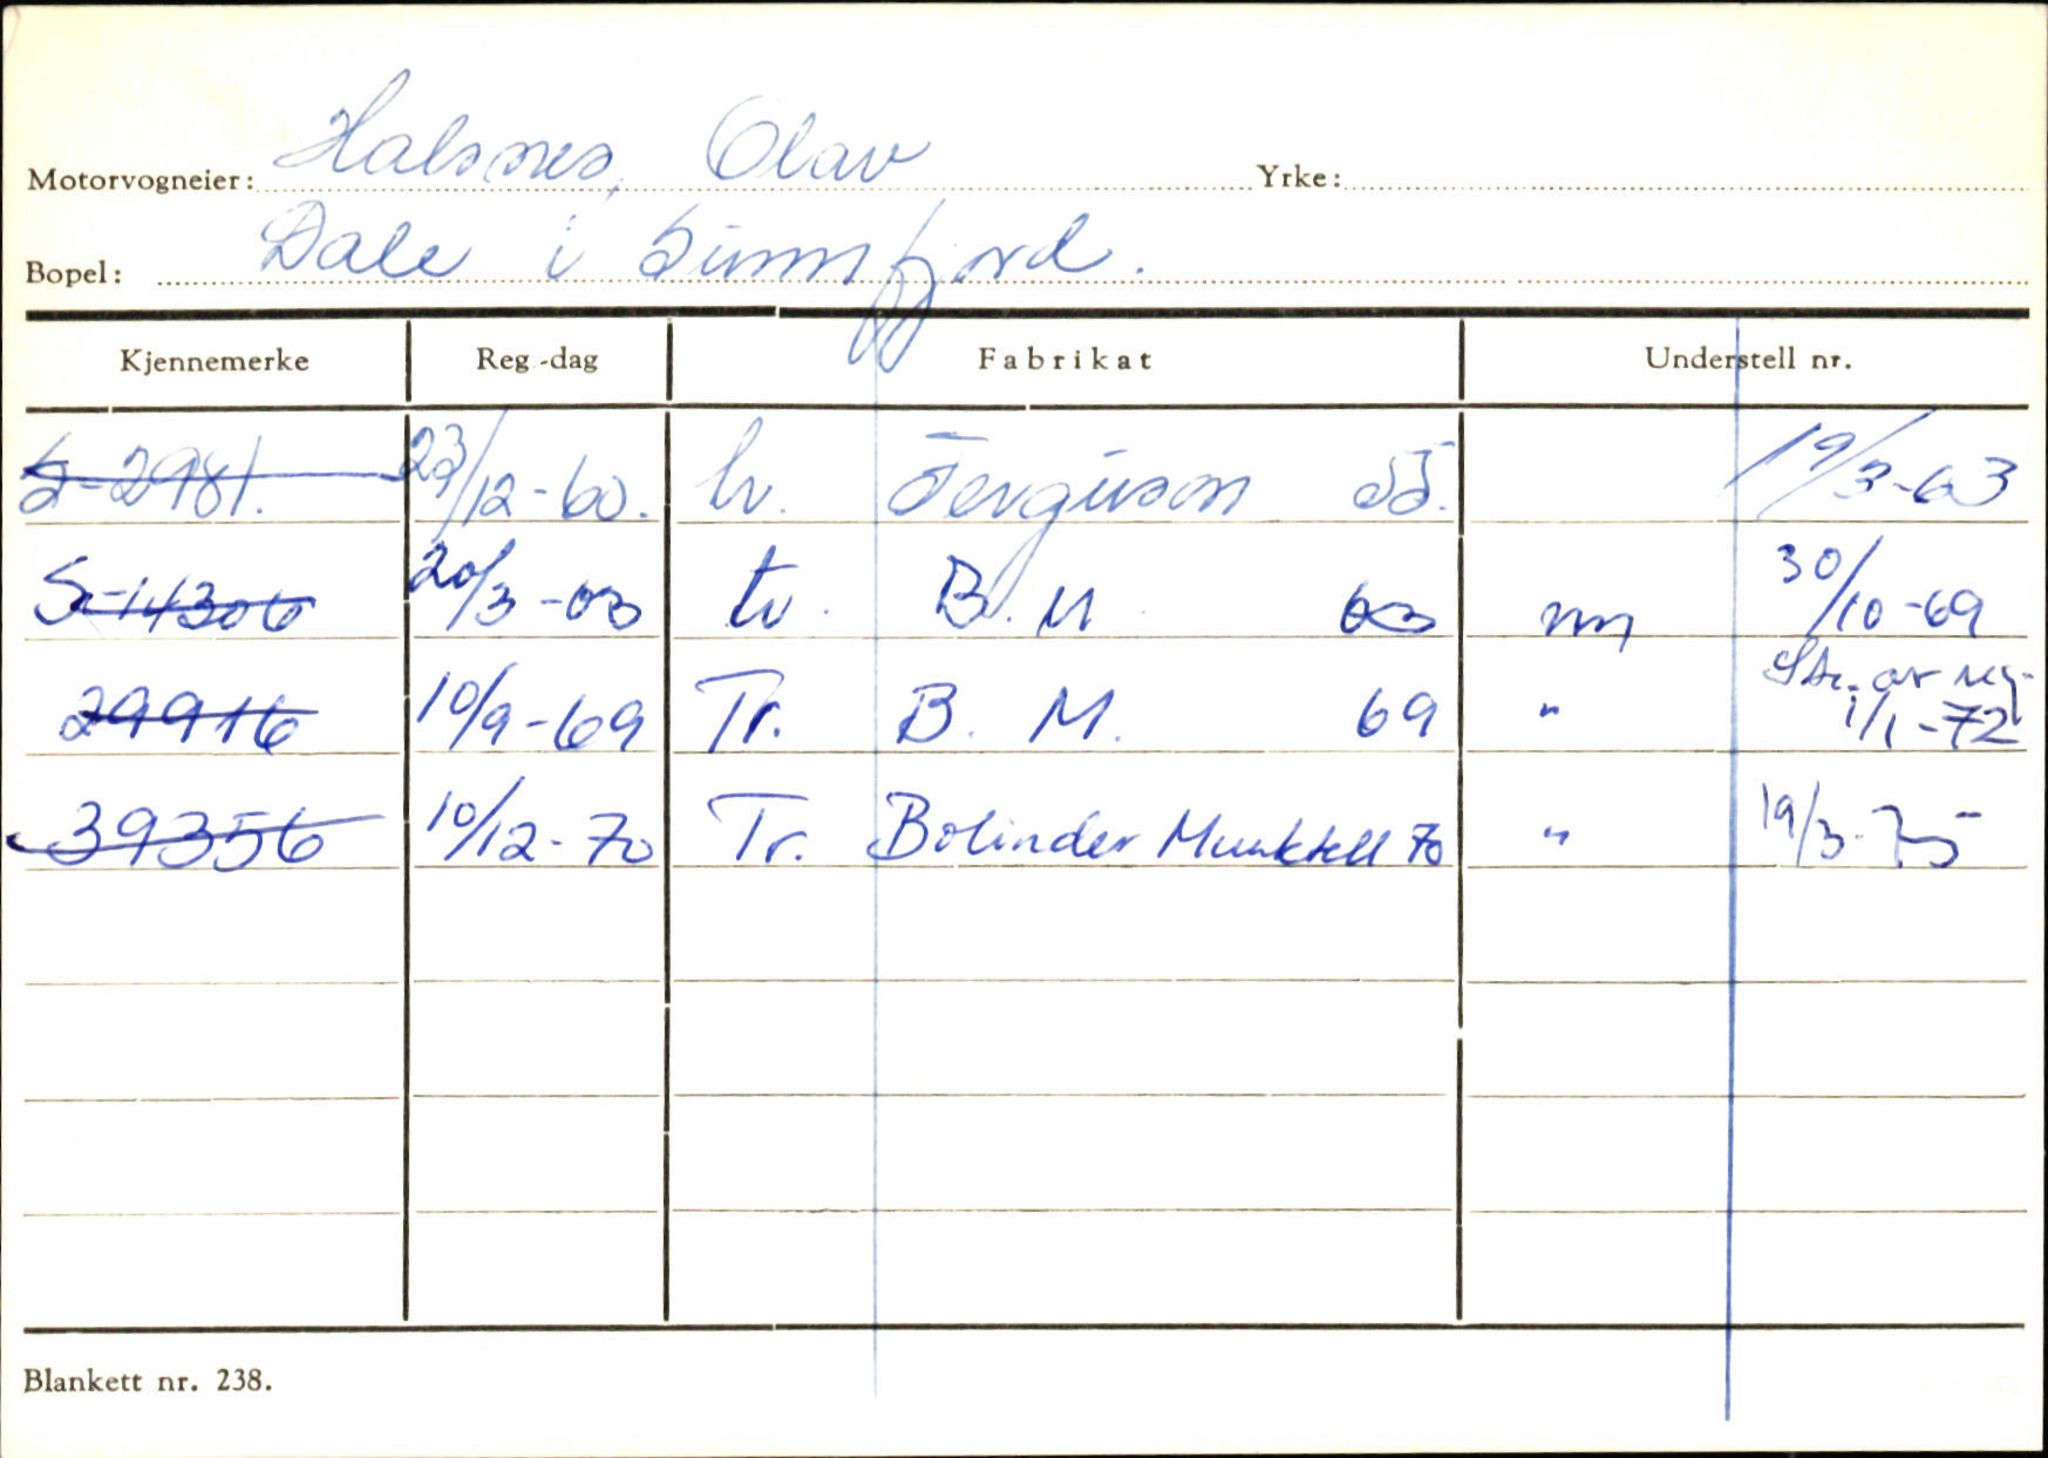 Motorvogneier: Halsnes, Olav Yrke:
Bopel: Dale i Sunnfjord.
Kjennemerke Reg.-dag Fabrikat Understell nr.
S-2981. 23/12-60. tr. Ferguson 55. 19/3-63
S-14306 20/3-63 tr. B. M. 63 nm 30/10-69
29916 10/9-69 Tr. B. M. 69 " Str. av reg. 1/1-72
39356 10/12-70 Tr. Bolinder Munktell 70 " 19/3-75
Blankett nr. 238.